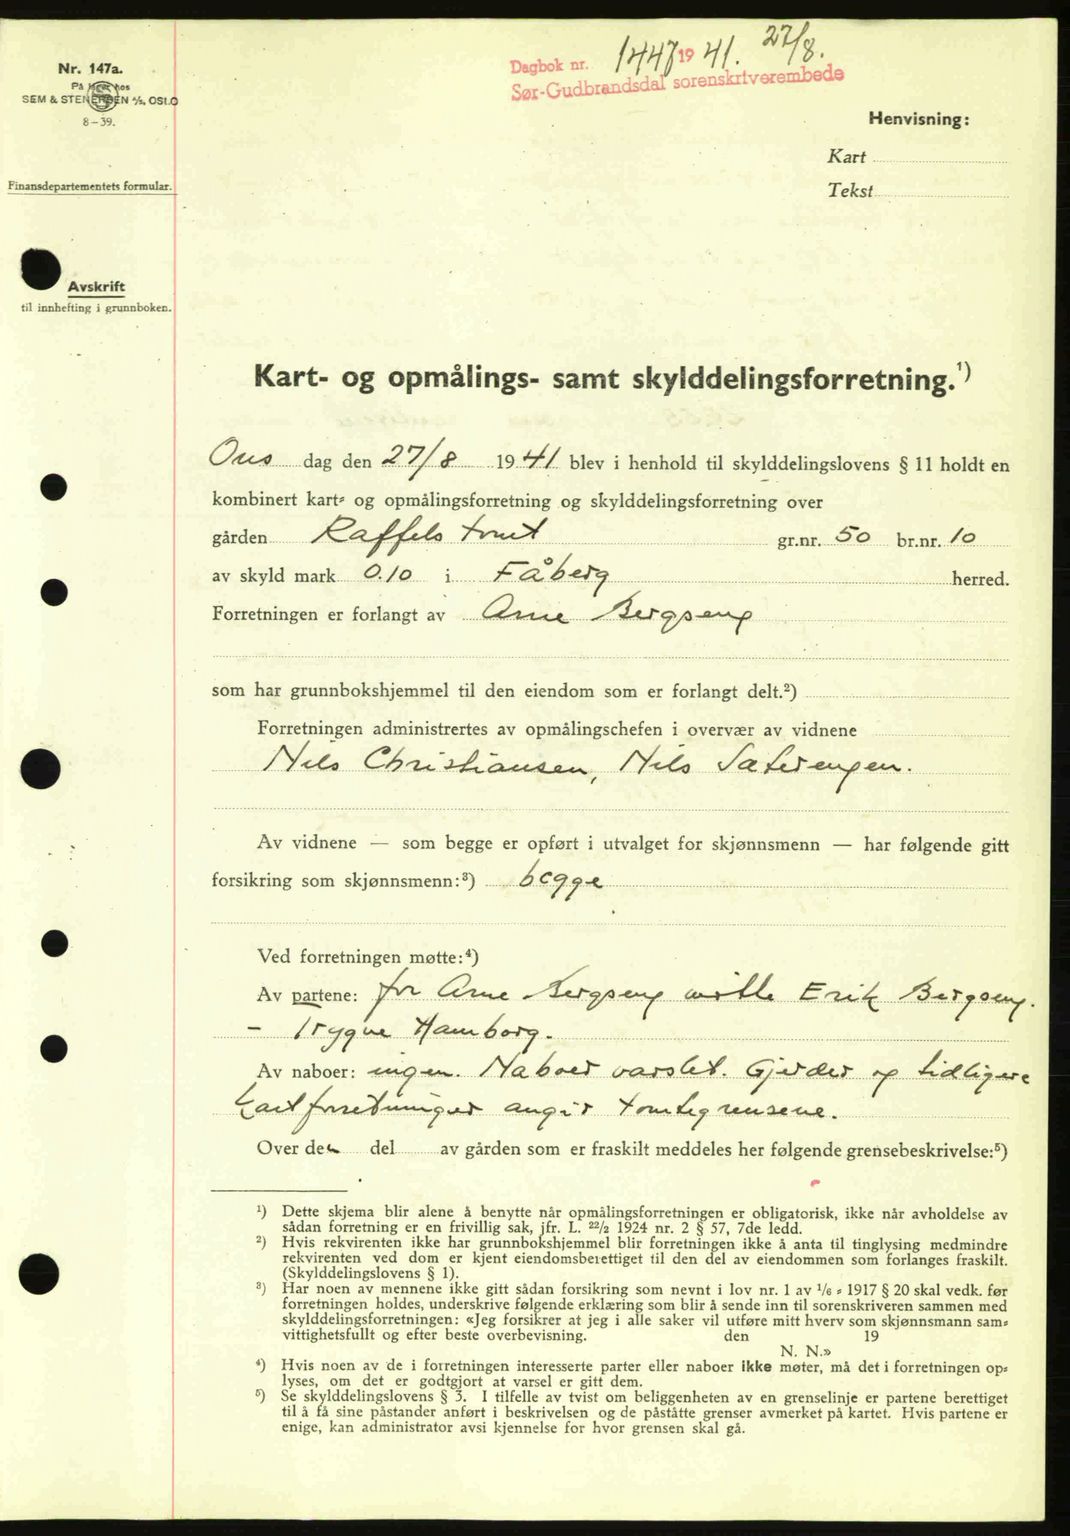 Nr. 147a.
På lager hos
SEM & STENERSEN A/S, OSLO
8-39.
Finansdepartementets formular.
Avskrift
til innhefting i grunnboken.
Dagbok nr. 1447 19 41. 27/8.
Sør-Gudbrandsdal sorenskriverembede
Henvisning:
Kart
Tekst
Kart- og opmålings- samt skylddelingsforretning.¹)
Ons dag den 27/8 19 41 blev i henhold til skylddelingslovens § 11 holdt en
kombinert kart- og opmålingsforretning og skylddelingsforretning over
gården Raffels tomt gr.nr. 50 br.nr. 10
av skyld mark 0.10 i Fåberg herred.
Forretningen er forlangt av Arne Bergseng
som har grunnbokshjemmel til den eiendom som er forlangt delt.²)
Forretningen administrertes av opmålingschefen i overvær av vidnene
Nils Christiansen, Nils Sæterengen.
Av vidnene — som begge er opført i utvalget for skjønnsmenn — har følgende gitt
forsikring som skjønnsmenn:³) begge
Ved forretningen møtte:⁴)
Av partene: for Arne Bergseng møtte Erik Bergseng.
- Trygve Hamborg.
Av naboer: ingen. Naboer varslet. Gjerder og tidligere
kartforretninger angir tomtegrensene.
Over den del av gården som er fraskilt meddeles her følgende grensebeskrivelse:⁵)
¹) Dette skjema blir alene å benytte når opmålingsforretningen er obligatorisk, ikke når avholdelse av
sådan forretning er en frivillig sak, jfr. L. 22/2 1924 nr. 2 § 57, 7de ledd.
²) Hvis rekvirenten ikke har grunnbokshjemmel blir forretningen ikke å anta til tinglysing medmindre
rekvirenten ved dom er kjent eiendomsberettiget til den del av eiendommen som forlanges fraskilt.
(Skylddelingslovens § 1).
³) Har noen av mennene ikke gitt sådan forsikring som nevnt i lov nr. 1 av 1/6 - 1917 § 20 skal vedk. før
forretningen holdes, underskrive følgende erklæring som blir å sende inn til sorenskriveren sammen med
skylddelingsforretningen: «Jeg forsikrer at jeg i alle saker vil utføre mitt hverv som skjønnsmann sam-
vittighetsfullt og efter beste overbevisning. den 19
N. N.»
⁴) Hvis noen av de i forretningen interesserte parter eller naboer ikke møter, må det i forretningen op-
lyses, om det er godtgjort at varsel er gitt dem.
⁵) Se skylddelingslovens § 3. I tilfelle av tvist om beliggenheten av en grenselinje er partene berettiget
til å få sine påstander anført i beskrivelsen og de påståtte grenser avmerket på kartet. Hvis partene er
enige, kan administrator avsi kjennelse for hvor grensen skal gå.